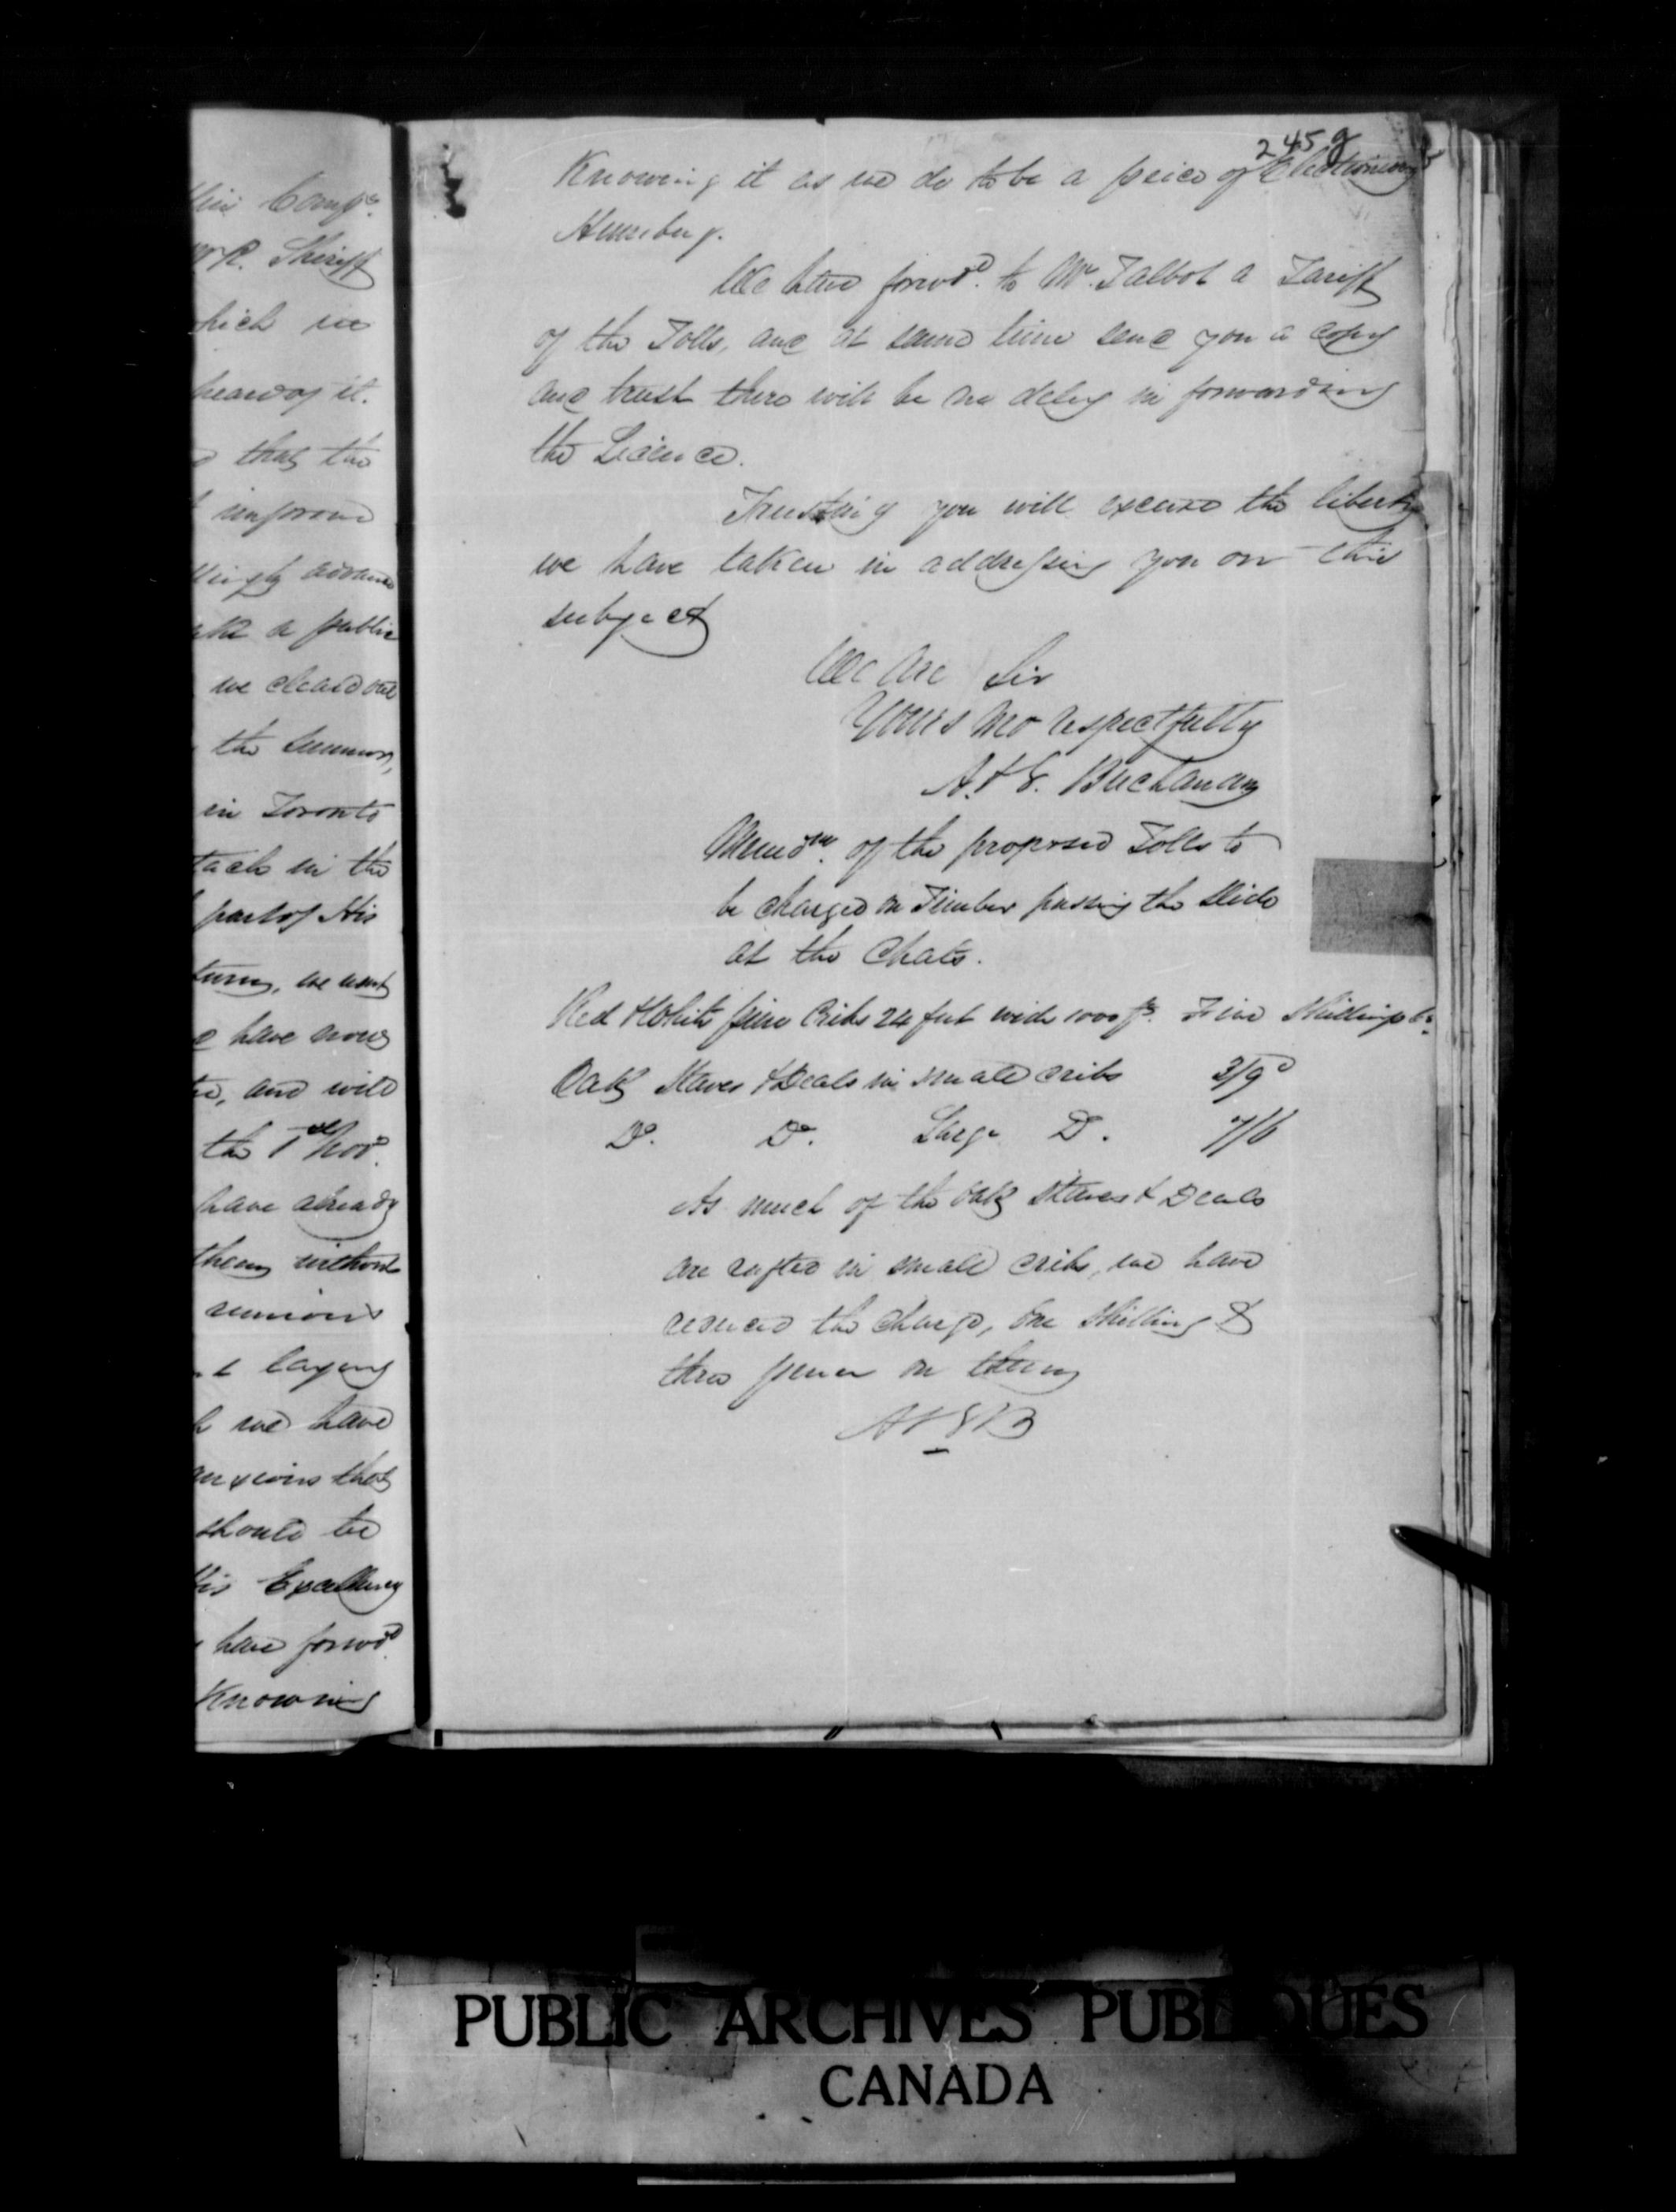 lin Comp.
R. Sheriff
hich we
heard of it.
that the
improve
advance
a public
we cleared out
the summer,
in Toronto
tach in the
part of His
turn, we want
have
and will
the 1st Nov.
have already
them without
laying
we have
anxious that
should be
His Excellency
have forwd.
Knowing
245 g
Knowing it as we do to be a peice of Electioneering
Humbug.
We have forwd. to Mr. Talbot a Tariff
of the Tolls, and at same time send you a copy
and trust there will be no delay in forwarding
the Licence.
Trusting you will excuse the liberty
we have taken in addressing you on this
subject
We Are Sir
Yours mo respectfully
A. & J. Buchanan
Memdm. of the proposed Tolls to
be charged on Timber passing the Slide
at the Chats.
Red & White pine Cribs 24 feet wide 1000 ft. Five Shillings
Oak Staves & Deals in small cribs 3/9d
Do. Do. Large Do. 7/6
As much of the Oak Staves & Deals
are rafted in small cribs, we have
reduced the charge, One Shilling &
three pence on them
A & J B
PUBLIC ARCHIVES PUBLIQUES
CANADA